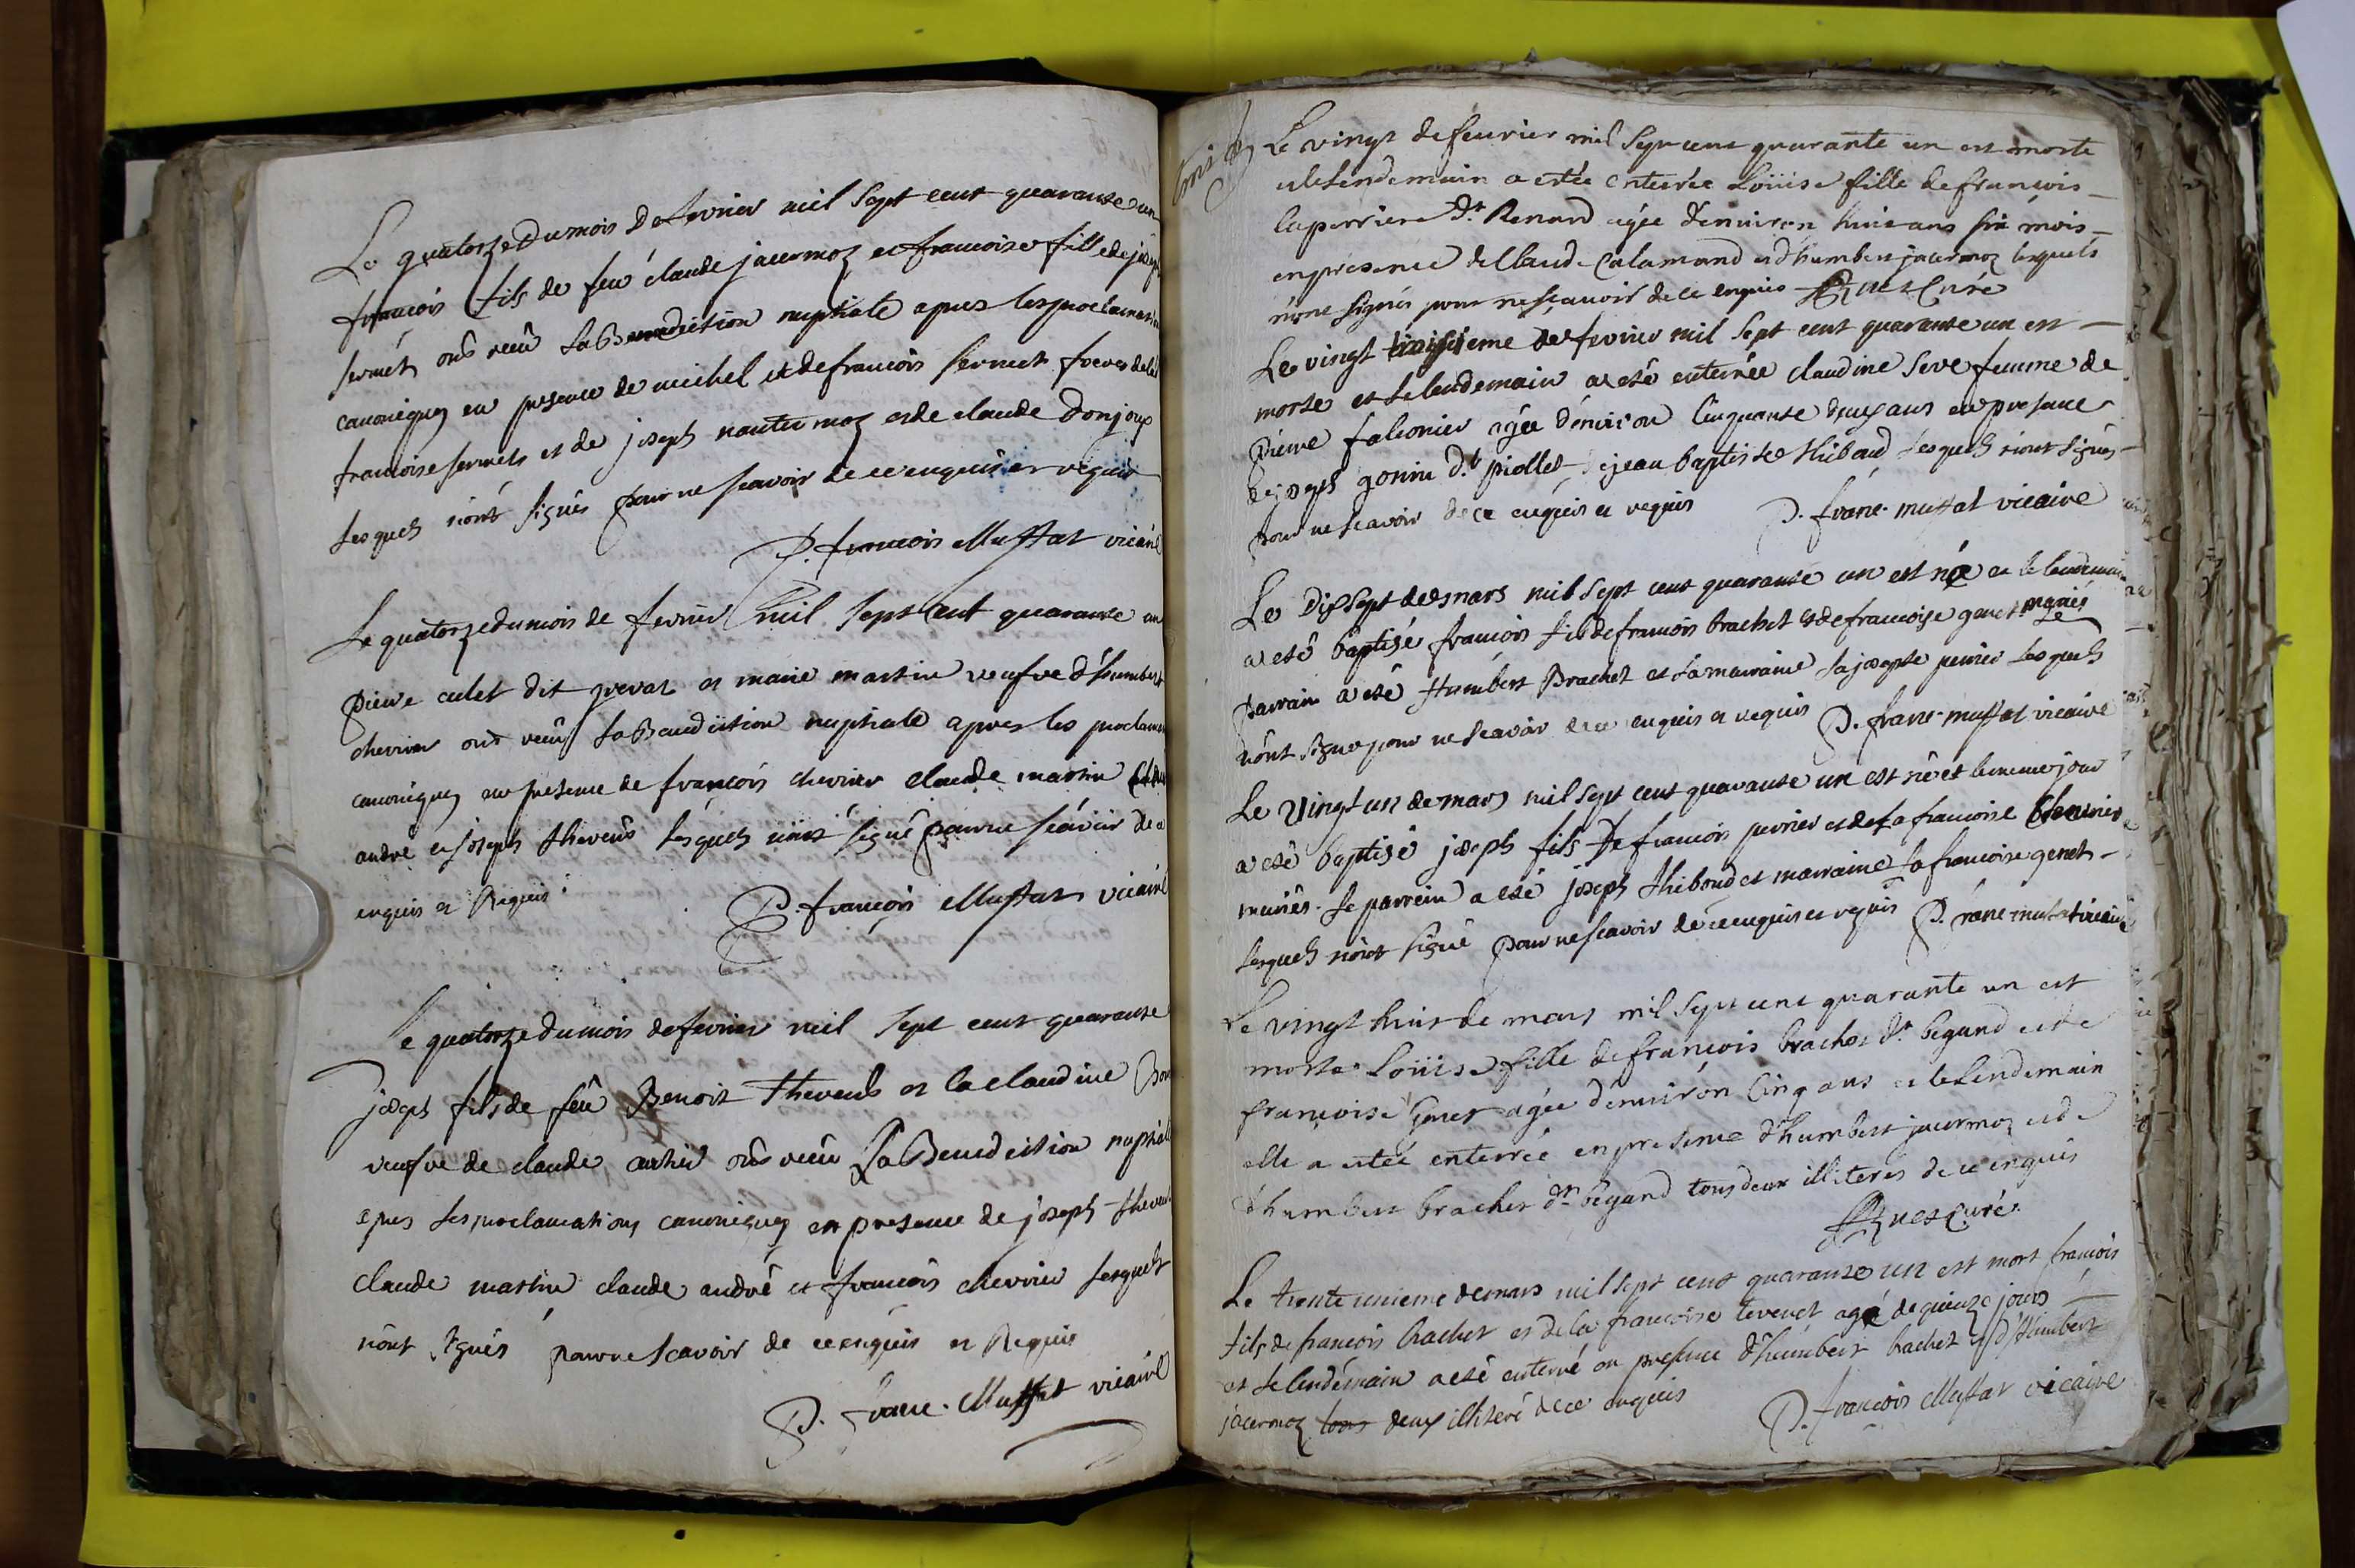 Le quatorze du mois De fevrier mil Sept cent quarante un
francois fils de feu claude jacermoz et francoise fille de joseph
fermet ont reçu La Benediction nuptiale apres les proclamation
canoniques en presence de michel et de francois fermet freres de la
francoise fermets et de joseph nantermoz et de claude Donjoux
Lesquels n'ont signés pour ne scavoir de ce enquis et requis
P. francois Muffat vicaire
Le quatorze du mois de fevrier mil Sept Cent quarante un
pierre culet dit grevaz et marie martin veufve d'humbert
chevrier ont reçu La Benediction nuptiale apres les proclama
canoniques en presence de françois chevrier claude martin
andre et joseph thevens lesquels n'ont signé pour ne scavoir de ce
enquis et Requis
P. françois Muffat vicaire
Le quatorze du mois de fevrier mil Sept cent quarante
joseph fils de feu Benoit Thevens et la claudine
veufve de claude ont reçu La Benediction nuptiale
apres les proclamations canoniques en presence de joseph
claude martin claude andré et francois chevrier lesquels
n'ont signés pour ne scavoir de ce enquis et Requis
P. franc. Muffat vicaire
Le vingt de feurier mil Sept cent quarante un est morte
et le lendemain a estée enterrée Loüise fille de francois
laperriere dt Renard agée d'enuiron huit ans six mois
en presence de Claude Calamand et d'humbert jacermoz lesquels
n'ont signés pour ne sçauoir de ce enquis Curé
Le vingt troisieme de fevrier mil Sept cent quarante un est
morte et le lendemain a eté enterrée claudine seve femme de
pierre falconier agée d'environ Cinquante deux ans en presence
de joseph gonin dt piollet jean baptiste thibaud lesquels n'ont signés
pour ne scavoir de ce enquis et requis P. franc. muffat vicaire
Le Dix sept de mars mil Sept cent quarante un est né et le lendemain
a eté baptisé francois fils de francois brachet et de francoise genet mariés Le
parrain a eté Humbert Brachet et la marraine la josepte perrier lesquels
n'ont signé pour ne scavoir de ce enquis et requis P. franc. muffat vicaire
Le Vingt un de mars mil Sept cent quarante un est né et le meme jour
a eté baptisé joseph fils De francois perrier et de la francoise Chevrier
mariés. Le parrein a eté joseph thiboud et marraine la francoise genet
lesquels n'ont signé pour ne scavoir de ce enquis et requis P. franc. mufat vicaire
Le vingt huit de mars mil Sept cent quarante un est
morte Loüise fille de francois brachet dt begand et de
françoise Genet agée d'enuiron Cinq ans et le lendemain
elle a estée enterrée en presence d'humbert jacermoz et de
d'humbert brachet dt begand tous deux illiteres de ce enquis
Curé
Le trente unieme de mars mil Sept cent quarante un est mort françois
fils de francois brachet et de la francoise agé de quinze jours
et le lendemain a eté enterré en presence d'humbert brachet et d'humbert
jacermoz tous deux illiteré de ce enquis
P. francois Muffat vicaire